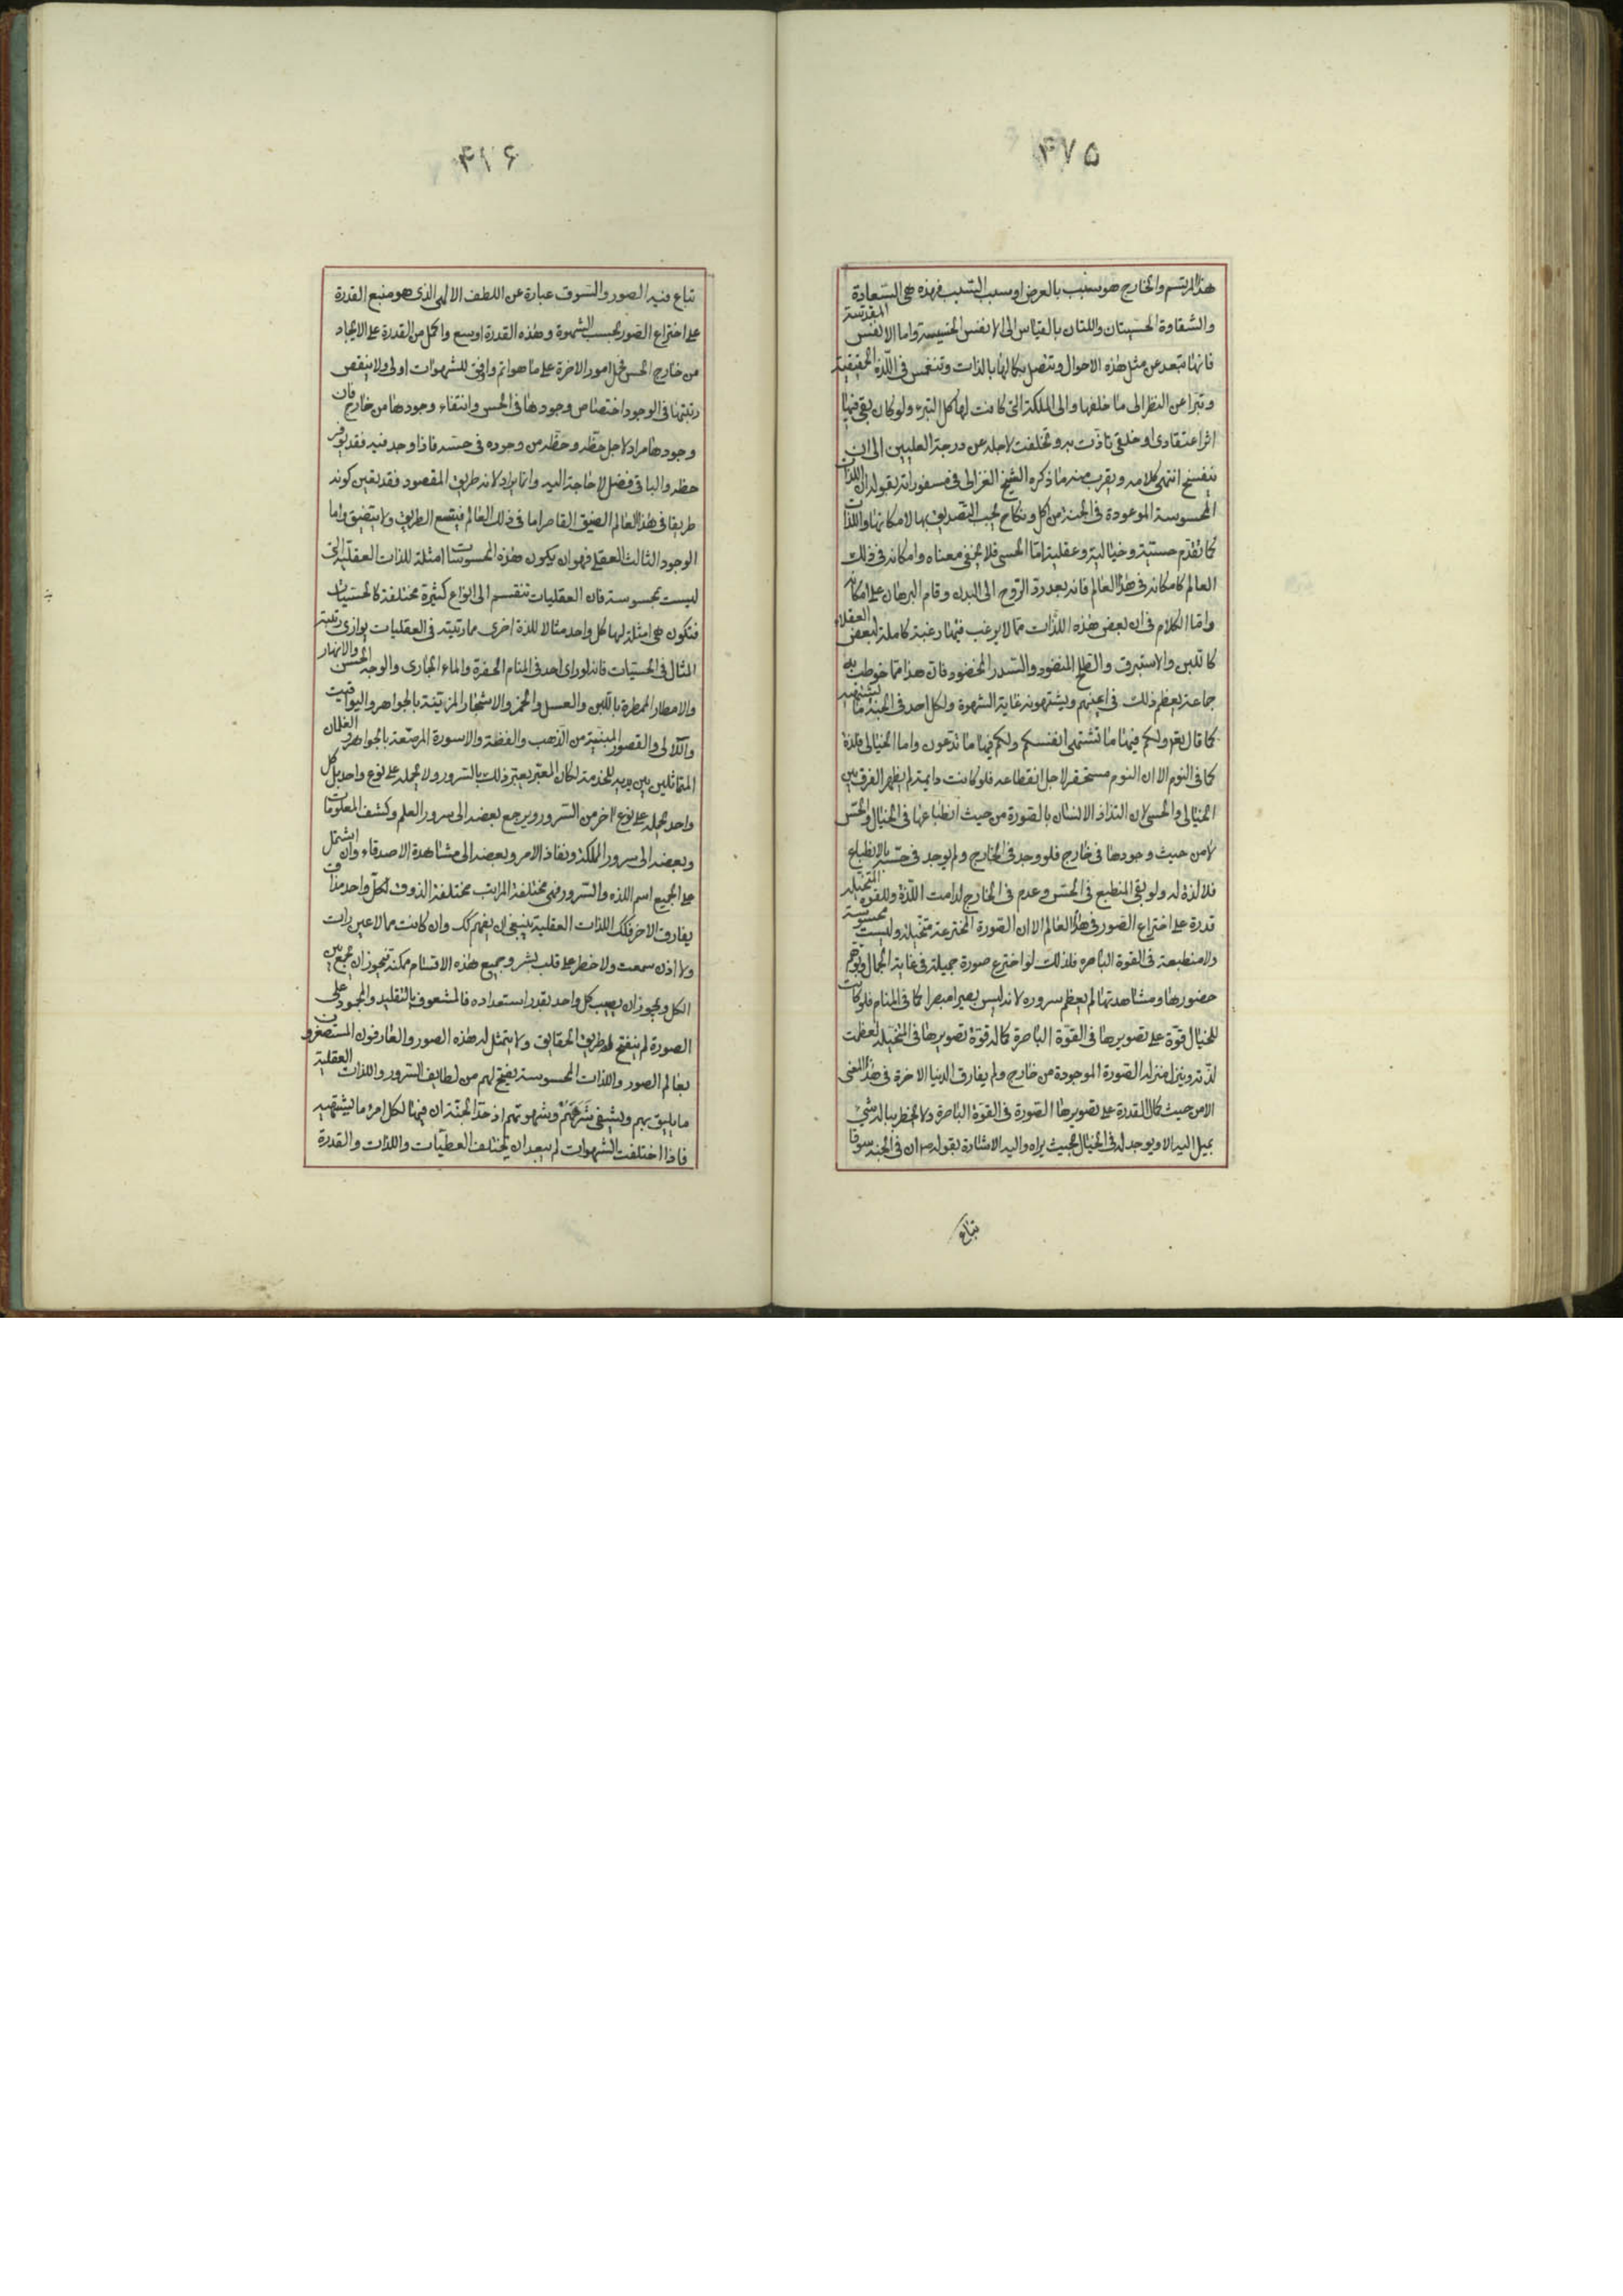 ۴۷۵
هذا المرتسم والخارج هو سبب بالعرض او سبب السبب فهذه هى السعادة
والشقاوة الخسيستان واللتان بالقياس الى الانفس الخسيسة واما الانفس المقدسة
فانها تبعد عن مثل هذه الاحوال وتتصل بكمالها بالذات وتنغمس فى اللذة الحقيقية
وتتبرا عن النظر الى ما خلفها والى المملكة التى كانت لها كل التبرء ولو كان بقى فيها
اثر اعتقادى او خلقى تاذت به وتخلفت لاجله عن درجة العليين الى ان
ينفسخ انتهى كلامه ويقرب منه ما ذكره الشيخ الغزالى فى مسفوراته بقوله ان اللذات
المحسوسة الموعودة فى الجنة من اكل ونكاح يجب التصديق بها لامكانها واللذات
كما تقدم حسية وخيالية وعقلية اما الحسى فلا يخفى معناه وامكانه فى ذلك
العالم كامكانه فى هذا العالم فانه بعد رد الروح الى البدن وقام البرهان على امكانه
واما الكلام فى ان بعض هذه اللذات مما لا يرغب فيها رغبة كاملة لبعض العقلاء
كاللبن والاستبرق والطلح المنضود والسدر المخضود فان هذا مما خوطب به
جماعة يعظم ذلك فى اعينهم ويشتهونه غاية الشهوة ولكل احد فى الجنة ما يشتهيه
كما قال تعم ولكم فيها ما تشتهى انفسكم ولكم فيها ما تدعون واما الخيالى فلذة
كما فى النوم الا ان النوم مستحقر لاجل انقطاعه فلو كانت دايمة لم يظهر الفرق بين
الخيالى والحسى لان التذاذ الانسان بالصورة من حيث انطباعها فى الخيال والحس
لا من حيث وجودها فى خارج فلو وجد فى الخارج ولم يوجد فى حسه بالانطباع
فلا لذة له ولو بقى المنطبع فى الحس وعدم فى الخارج لدامت اللذة وللقوة المتخيلة
قدرة على اختراع الصور فى هذا العالم الا ان الصورة المخترعة متخيلة وليست محسوسة
ولا منطبعة فى القوة الباصره فلذلك لو اخترع صورة جميلة فى غاية الجمال وتوهم
حضورها ومشاهدتها لم يعظم سروره لانه ليس يصير مبصرا كما فى المنام فلو كانت
للخيال قوة على تصويرها فى القوة الباصرة كما له قوة تصويرها فى المتخيلة لعظمت
لذته وينزل منزله الصورة الموجودة من خارج ولم يفارق الدنيا الاخرة فى هذا المعنى
الا من حيث كمال القدرة على تصويرها الصورة فى القوة الباصرة ولا يخطر بباله شئ
يميل اليه الا ويوجد له فى الخيال بحيث يراه واليه الاشارة بقوله ص ان فى الجنة سوقا
تباع
۴۱۶
تباع فيه الصور والسوق عبارة عن اللطف الالهى الذى هو منبع القدرة
على اختراع الصور بحسب الشهوة وهذه القدرة اوسع واكمل من القدرة على الايجاد
من خارج الحس فحمل امور الاخرة على ما هو اتم واوفق للشهوات اولى ولا ينقص
رتبتها فى الوجود اختصاص وجودها فى الحس وانتفاء وجودها من خارج فان
وجودها مراد لاجل حظه وحظه من وجوده فى حسه فاذا وجد فيه فقد توفر
حظه والباقى فضل لا حاجة اليه وانما يراد لانه طريق المقصود فقد تعين كونه
طريقا فى هذا العالم الضيق القاصر اما فى ذلك العالم فيتسع الطريق ولا يتضيق واما
الوجود الثالث العقلى فهو ان يكون هذه المحسوسات امثلة للذات العقلية التى
ليست بمحسوسة فان العقليات تنقسم الى انواع كثيرة مختلفة كالحسيات
فتكون هى امثلة لها كل واحد مثالا للذة اخرى مما رتبته فى العقليات توازى رتبة
المثال فى الحسيات فانه لو راى احد فى المنام الخضرة والماء الجارى والوجه الحسن والانهار
والامطار الممطرة باللبن والعسل والخمر والاشجار المزينة بالجواهر واليواقيت
واللآلى والقصور المبنية من الذهب والفضة والاسورة المرصعة بالجواهر والغلمان
المتماثلين بين يديه للخدمة لكان المعبر يعبر ذلك بالسرور ولا يحمله على نوع واحد بل كل
واحد يحمله على نوع اخر من السرور ويرجع بعضه الى سرور العلم وكشف المعلومات
وبعضه الى سرور المملكة ونفاذ الامر وبعضه الى مشاهدة الاصدقاء وان اشتمل
على الجميع اسم اللذه والسرور فهى مختلفة المراتب مختلفة الذوق لكل واحد مذاق
يفارق الاخر فكك اللذات العقلية ينبغى ان يفهم كك وان كانت مما لا عين رات
ولا اذن سمعت ولا خطر على قلب بشر وجميع هذه الاقسام ممكنة فيجوز ان يجمع بين
الكل ويجوز ان يصيب كل واحد بقدر استعداده فالمشعوف بالتقليد والجمود على
الصورة لم ينفتح له طريق الحقايق ولا يتمثل له هذه الصور والعارفون المستصغرون
بعالم الصور واللذات المحسوسة يفتح لهم من لطايف السرور واللذات العقلية
ما يليق بهم ويشفى شرههم وشهوتهم اذ حد الجنة ان فيها لكل امرء ما يشتهيه
فاذا اختلفت الشهوات لم يبعد ان يختلف العطيات واللذات والقدرة